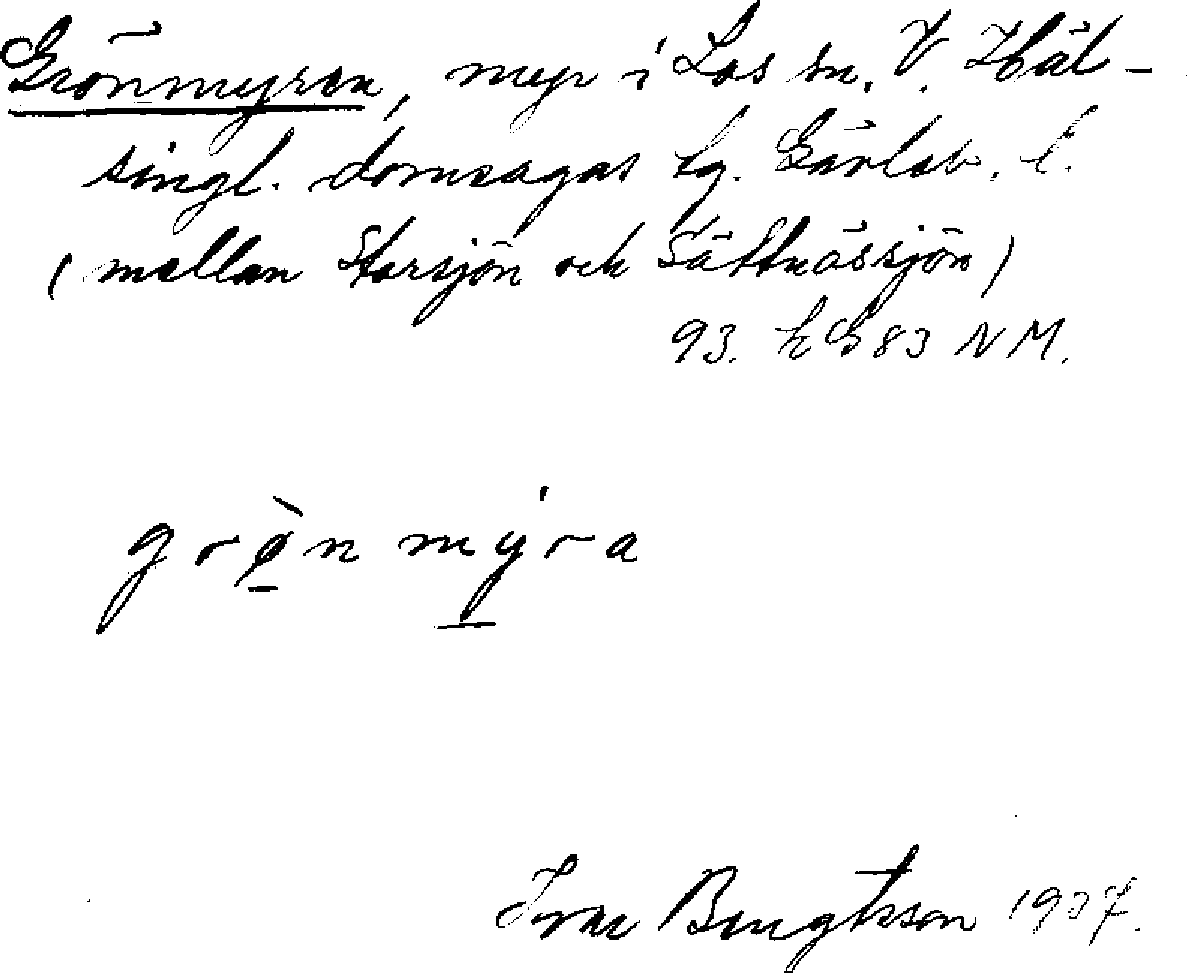 Grönmyren, myr i Los sn. V. Häl-
singl. domsagas tg. Gävleb. l.
(mellan Storsjön och Sättnässjön)
93. h G 83 NM.
grø̀n mýra
Ivar Bengtsson 1937.